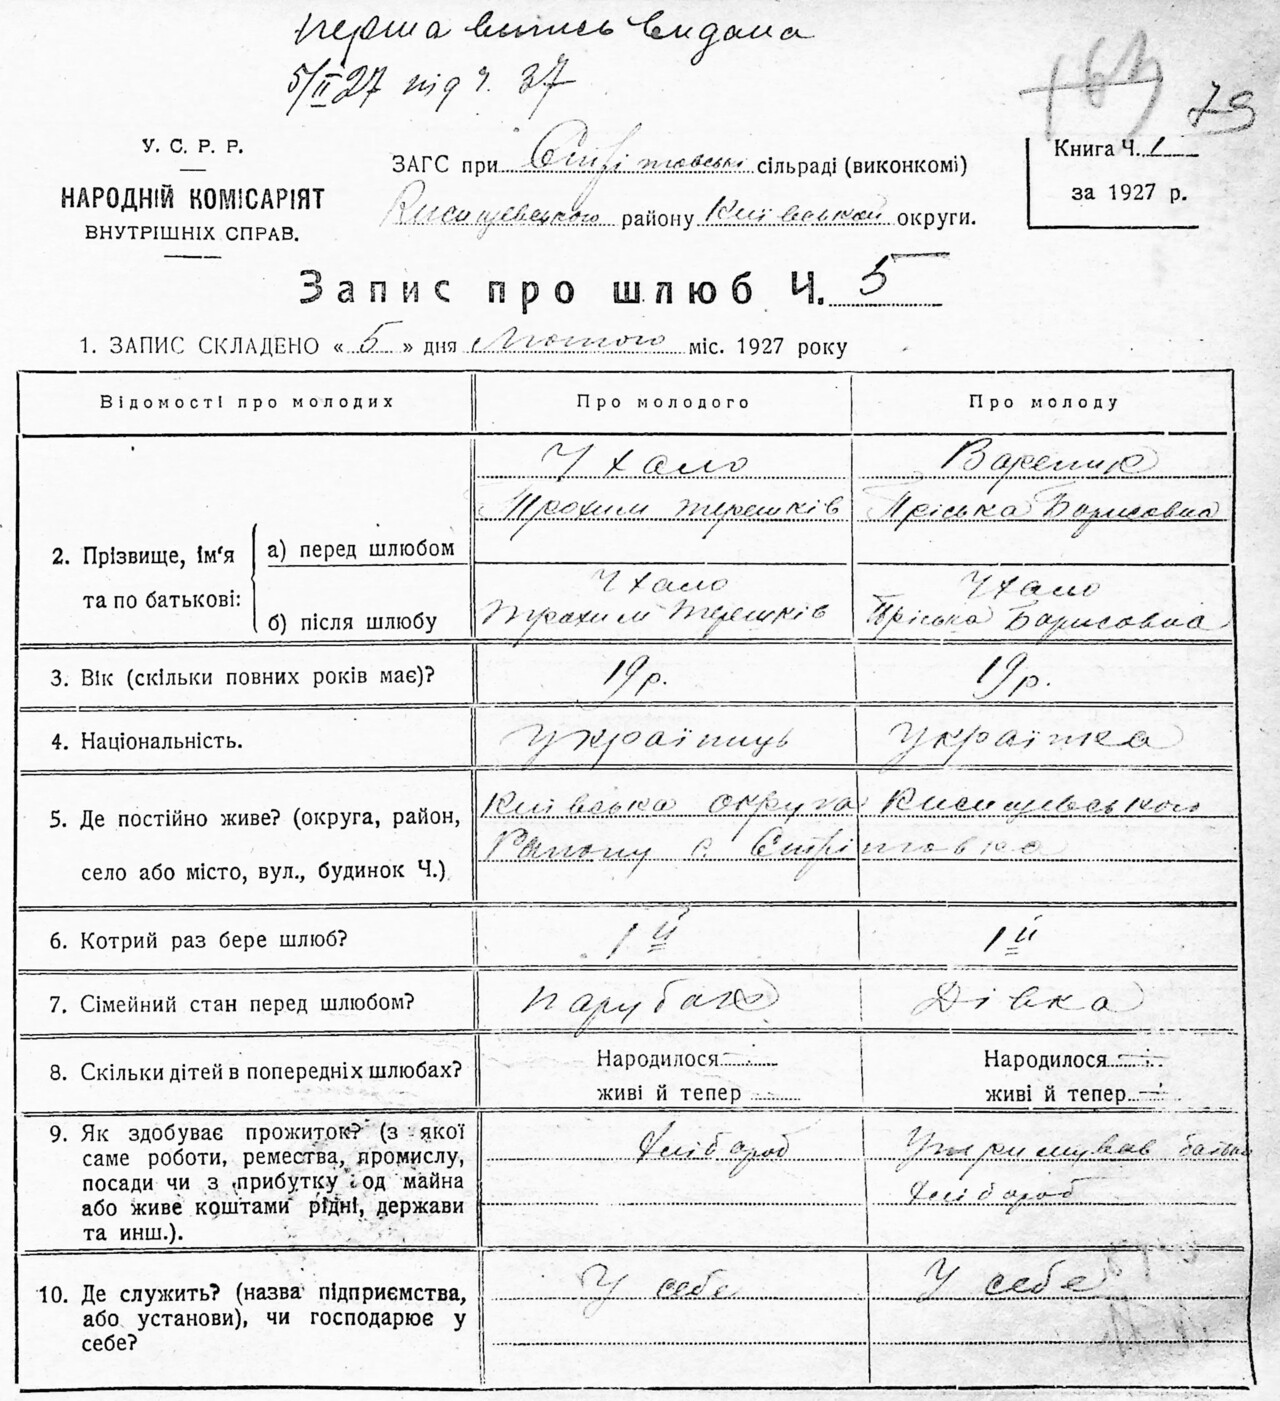 перша випись видана
5/II 27 під ч. 37
79
У. С. Р. Р.
НАРОДНІЙ КОМІСАРІЯТ
ВНУТРІШНІХ СПРАВ.
ЗАГС при Стрітовські сільраді (виконкомі)
району Київської округи.
Книга Ч. 1
за 1927 р.
Запис про шлюб Ч. 5
1. ЗАПИС СКЛАДЕНО « 5 » дня Лютого міс. 1927 року
Відомості про молодих Про молодого Про молоду
2. Прізвище, ім'я та по батькові:
а) перед шлюбом
Чхало Вареник
Трохим Терешків Пріська Борисовна
б) після шлюбу
Чхало Чхало
Трохим Терешків Пріська Борисовна
3. Вік (скільки повних років має)? 19 р. 19 р.
4. Національність. Українць Українка
5. Де постійно живе? (округа, район,
село або місто, вул., будинок Ч.)
Київська округа
Району с. Стрітовка
6. Котрий раз бере шлюб? 1й 1й
7. Сімейний стан перед шлюбом? парубок Дівка
8. Скільки дітей в попередніх шлюбах? Народилося — Народилося —
живі й тепер — живі й тепер —
9. Як здобуває прожиток? (з якої
саме роботи, ремества, промислу,
посади чи з прибутку од майна
або живе коштами рідні, держави
та инш.).
хлібороб
Утримував батько
хлібороб
10. Де служить? (назва підприємства,
або установи), чи господарює у
себе?
У себе У себе